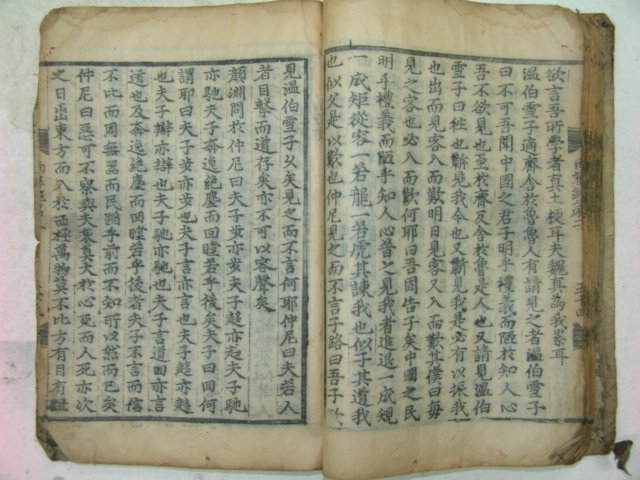 欲言吾所學者真土梗耳夫魏真為我累耳
温伯雪子適齊舍於魯魯人有請見之者温伯雪子
曰不可吾聞中國之君子明乎禮義而陋於知人心
吾不欲見也至於齊反舍於魯是人也又請見温伯
雪子曰往也蘄見我今也又蘄見我是必有以振我
也出而見客入而歎明日見客又入而歎其僕曰每
見之客也必入而歎何耶曰吾固告子矣中國之民
明乎禮義而陋乎知人心昔之見我者進退一成規
一成矩從容一若龍一若虎其諫我也似子其道我
也似父是以歎也仲尼見之而不言子路曰吾子欲
見温伯雪子久矣見之而不言何耶仲尼曰夫若人
者目擊而道存矣亦不可以容聲矣
顔淵問於仲尼曰夫子步亦步夫子趨亦趨夫子馳
亦馳夫子奔逸絶塵而回瞠若乎後矣夫子曰回何
謂耶曰夫子步亦步也夫子言亦言也夫子趨亦趨
也夫子辯亦辯也夫子馳亦馳也夫子言道回亦言
道也及奔逸絶塵而回瞠若乎後者夫子不言而信
不比而周無器而民蹈乎前而不知所以然而已矣
仲尼曰惡可不察與夫哀莫大於心死而人死亦次
之日出東方而入於西極萬物莫不比方有目有趾